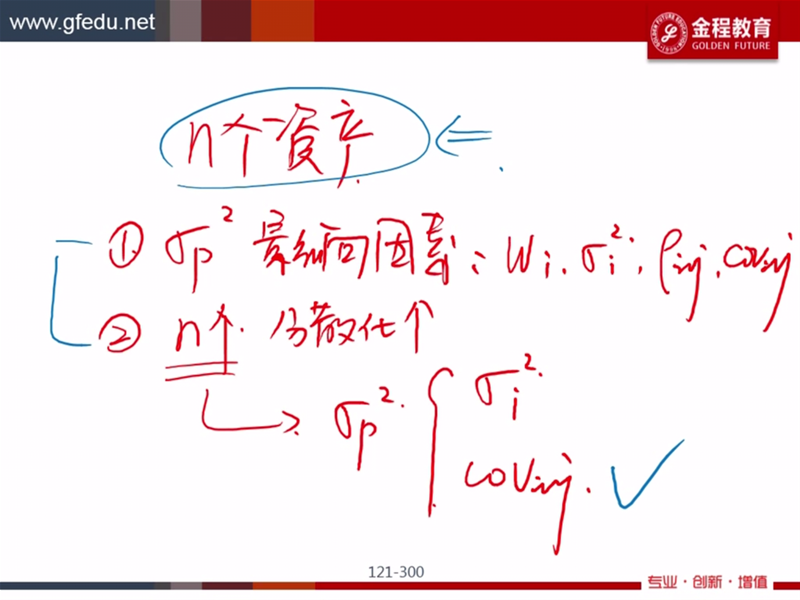 www.gfedu.net
金程教育
GOLDEN FUTURE
n个资产
① σp² 影响因素: Wi, σi², ρij, covij
② n↑. 分散化↑
σp² { σi²
covij. ✓
121-300
专业·创新·增值